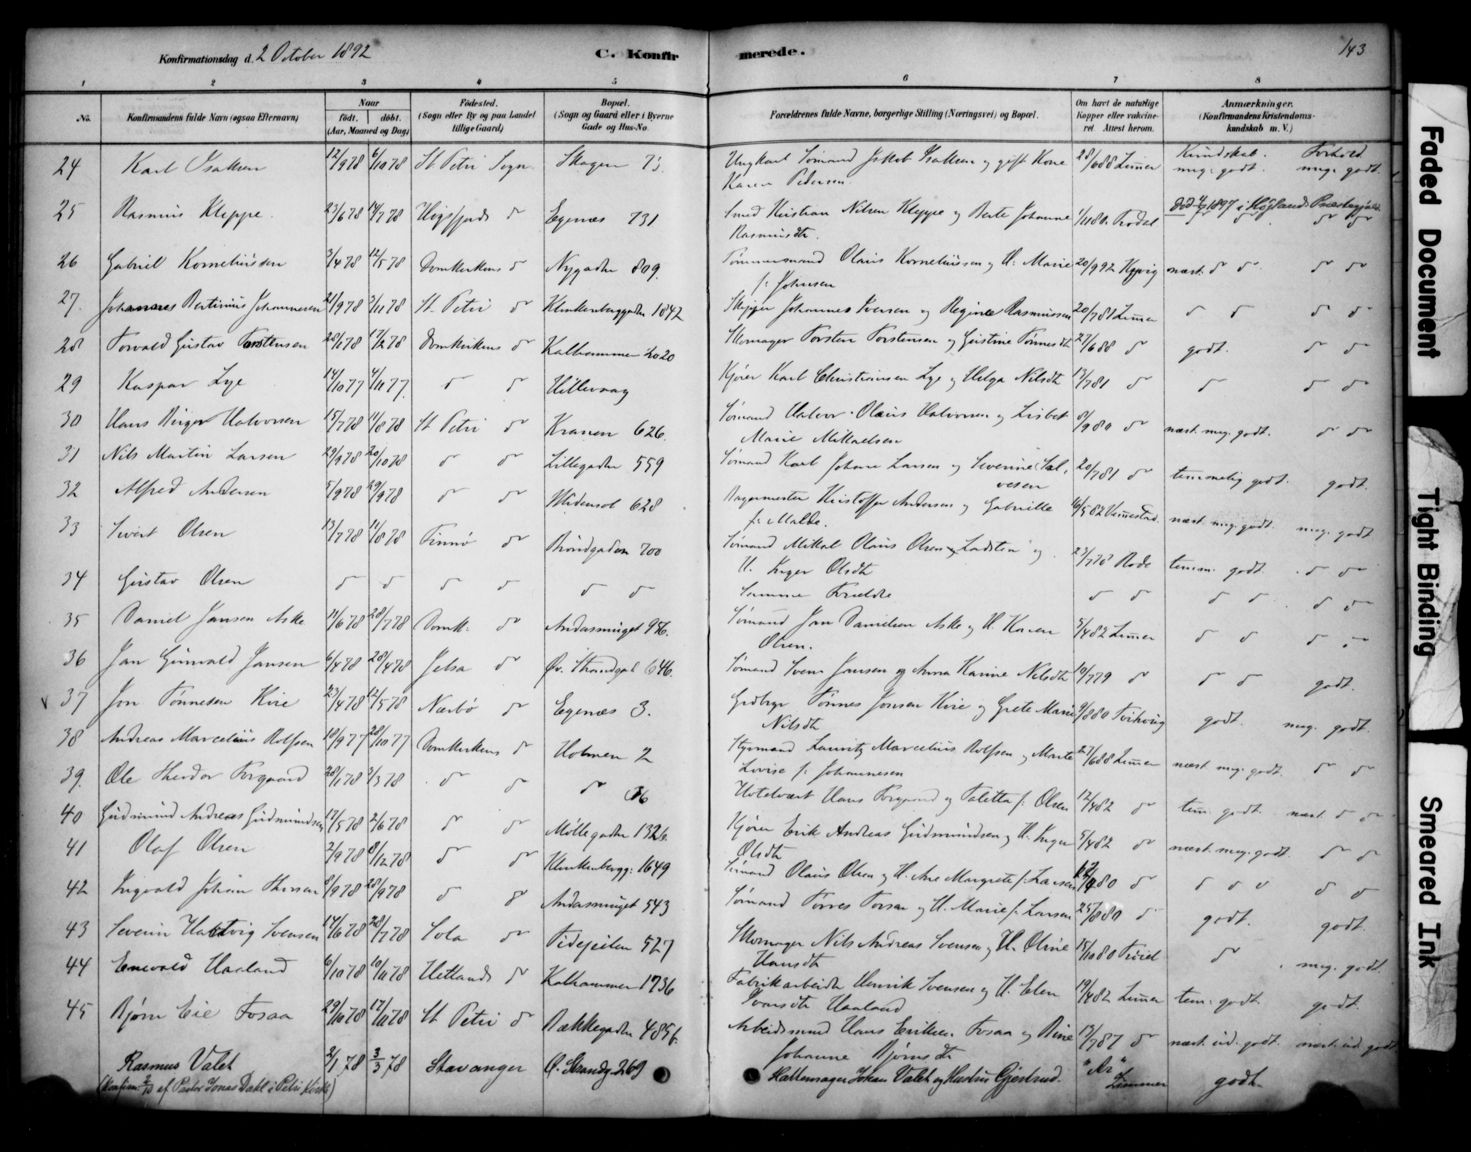 Konfirmationsdag d. 2 October 1892 C. Konfirmerede. 143
1 2 3 4 5 6 7 8
No. Konfirmandens fulde Navn (ogsaa Efternavn) Naar født. døbt. (Aar, Maaned og Dag) Fødested. (Sogn eller By og paa Landet tillige Gaard) Bopæl. (Sogn og Gaard eller i Byerne Gade og Hus-No. Forældrenes fulde Navne, borgerlige Stilling (Næringsvei) og Bopæl. Om havt de naturlige Kopper eller vakcineret. Attest herom. Anmærkninger. (Konfirmandens Kristendomskundskab m. V.)
Kundskab. Forhold
24 Karl Isaksen 12/9 78 6/10 78 St Petri Sogn. Skagen 73. Ungkarl Sømand Jakob Isaksen og gift Kone 28/6 88 Zimmer meg. godt. meg. godt
Karen Pedersen.
25 Rasmus Kleppe. 23/6 78 14/7 78 Høgsfjords do Egenæs 731 Smed Kristian Nilsen Kleppe og Berte Johanne
Rasmusdtr.
26 Gabriel Korneliussen 3/4 78 12/5 78 Domkirkens do Nygaden 809. Tømmermand Olaus Korneliussen og H. Marie 20/9 92 Kyvig næst. do do do do
f. Johnsen
27. Johannes Bertinius Johannesen 21/9 78 3/11 78 St Petri do Klinkenberggaden 1842 Skipper Johannes Iversen og Regine Rasmussen 20/7 81 Zimmer do do do do
28 Torvald Gustav Torstensen 28/1 78 17/2 78 Domkirkens do Kalhammer 2020 Skomager Torsten Torstensen og Gurstine Tønnesdt 27/6 88 do godt. do do
29 Kaspar Lye 14/10 77 4/10 77. do do Hillevaag Kjører Karl Christiansen Lye og Helga Nilsdt 13/7 81 do do do do
30 Hans Birger Halvorsen 15/7 78 11/8 78 St Petri do Kranen 626. Sømand Halvor Olaus Halvorsen og Lisbet 8/9 80 do næst meg. godt. do do
Marie Mikkelsen
31 Nils Martin Larsen 29/9 78 20/10 78 do do Lillegaden 559 Sømand Karl Johan Larsen og Severine Sal- 20/7 81 do temmelig godt. godt.
vesen
32 Alfred Andersen 5/9 78 29/9 78 do do Hidensol 628 Bagermester Kristoffer Andersen og Gabrielle næst meg. godt. meg. godt.
f. Malde.
33 Sivert Olsen 13/7 78 11/8 78 Finnø do Brøndgaden 700 Sømand Mikal Olaus Olsen Ladstein og temm. godt. do do
H. Inger Olsdtr
34 Gustav Olsen do do do do do do Samme Forældre do do do do do do
35 Daniel Jansen Aske 11/6 78 28/7 78 Domk. do Andasmuget 956. Sømand Jan Danielsen Aske og H. Karen 5/4 82 Zimmer do do do do
Olsen.
36 Jan Gunvald Jansen 6/4 78 28/4 78 Jelsa do Øv. Strandgad 646. Sømand Sven Jansen og Anna Karine Nilsdt 19/7 79 do do do godt.
37 Jon Tønnesen Hire 23/4 78 12/5 78 Nærbø do Egenæs 3. Grdbrgr Tønnes Jonsen Hire og Grete Marie godt. meg. godt.
Nilsdtr
38 Andreas Marcelius Rolfsen 10/9 77 28/10 77 Domkirkens do Holmen 2 Styrmand Lauritz Marcelius Rolfsen og Marte 27/6 88 Zimmer næst meg. godt. do do
Lovise f. Johannesen
39. Ole Theodor Torgaard 28/1 78 3/3 78 do do do 36 Hotelvært Hans Torgaard og Talitta f. Olsen 12/4 82 do tem. godt. næst do do
40 Gudmund Andreas Gudmundsen 17/5 78 2/6 78 do do Møllegaden 1326. Kjører Erik Andreas Gudmundsen og H. Inger 5/4 82 do næst meg. godt. do do
Olsdtr
41 Olaf Olsen 2/9 78 8/12 78 do do Klinkenbergg. 1649 Sømand Olaus Olsen og H. Ane Margrete f. Larsen do do do do do do
42 Ingvald Johan Thorsen 8/9 78 28/9 78 do do Andasmuget 543 Sømand Torres Torsen og H. Marie f. Larsen 25/8 80 do godt. godt.
43 Severin Hartvig Svensen 14/6 78 28/7 78 Sola do Tidejeilen 527 Skomager Nils Andreas Svensen og H. Oline do meg. godt.
Hansdtr
44 Enevald Haaland 6/10 78 10/11 78 Hetlands do Kalhammer 1736 Fabrikarbeider Henrik Svensen og H. Elen 19/4 82 Zimmer tem. godt. godt.
Ivarsdtr Haaland
45 Bjørn Eie Fosaa 29/10 78 17/11 78 St Petri do Bækkegaden 485b. Arbeidsmand Hans Eriksen Fosaa og Bine 13/7 87 do næst ud. godt. næst ud. godt
Johanne Bjørnsdtr
Rasmus Valet 2/1 78 3/3 78 Stavanger Ø. Strandg 269 Hattemager Johan Valet og Hustru Gjertrud. "Ar" af Zimmer godt.
(konfirm 2/10 af Pastor Jonas Dahl i Petri Kirke)
Faded Document
Tight Binding
Smeared Ink